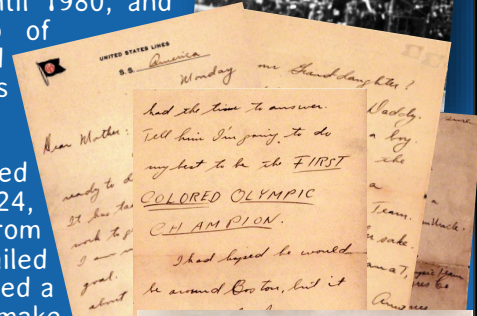 until 1980, and
of
24,
rom
iled
ed a
make
UNITED STATES LINES
S.S. America
Monday
Dear Mother:
ready to d
It has ta
work to p
I am
goal.
about
had the time to answer.
Tell him I'm going to do
my best to be the FIRST
COLORED OLYMPIC
CHAMPION.
I had hoped he would
be around Boston, but it
Granddaughter?
Daddy.
a boy.
the
a
Team.
sake.